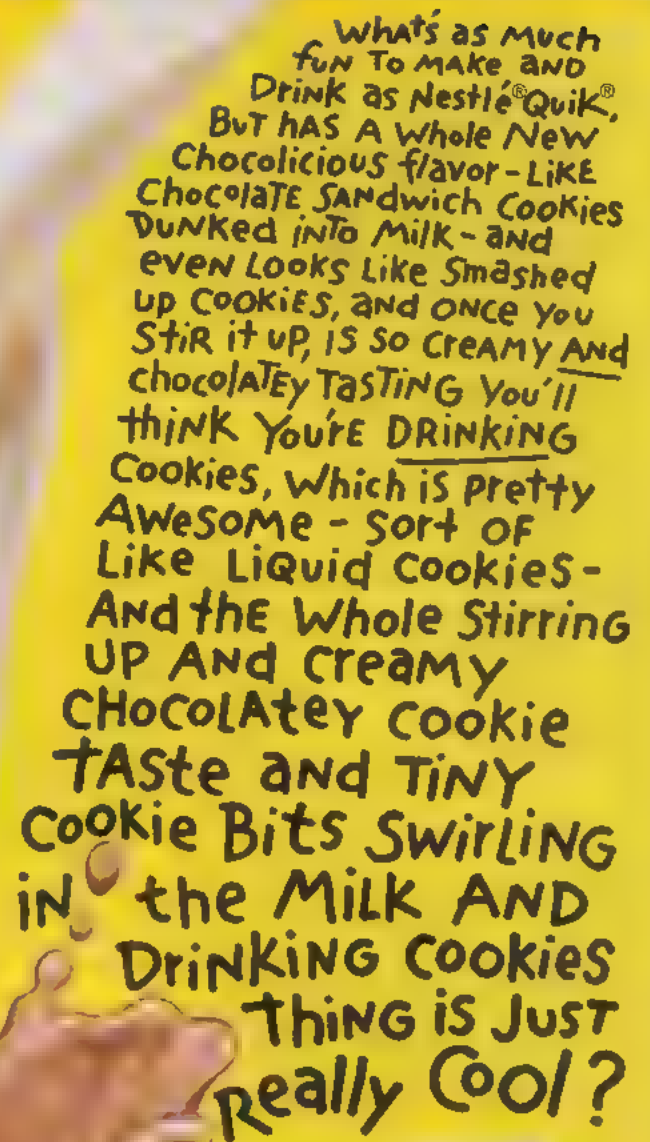 What's as much
fun to make and
Drink as Nestlé® Quik®,
But has a whole new
Chocolicious flavor - like
Chocolate sandwich cookies
Dunked into milk - and
even looks like smashed
up cookies, and once you
stir it up, is so creamy and
chocolatey tasting you'll
think you're drinking
cookies, which is pretty
awesome - sort of
like liquid cookies -
And the whole stirring
up and creamy
chocolatey cookie
taste and tiny
cookie bits swirling
in the milk and
Drinking cookies
thing is just
Really cool?